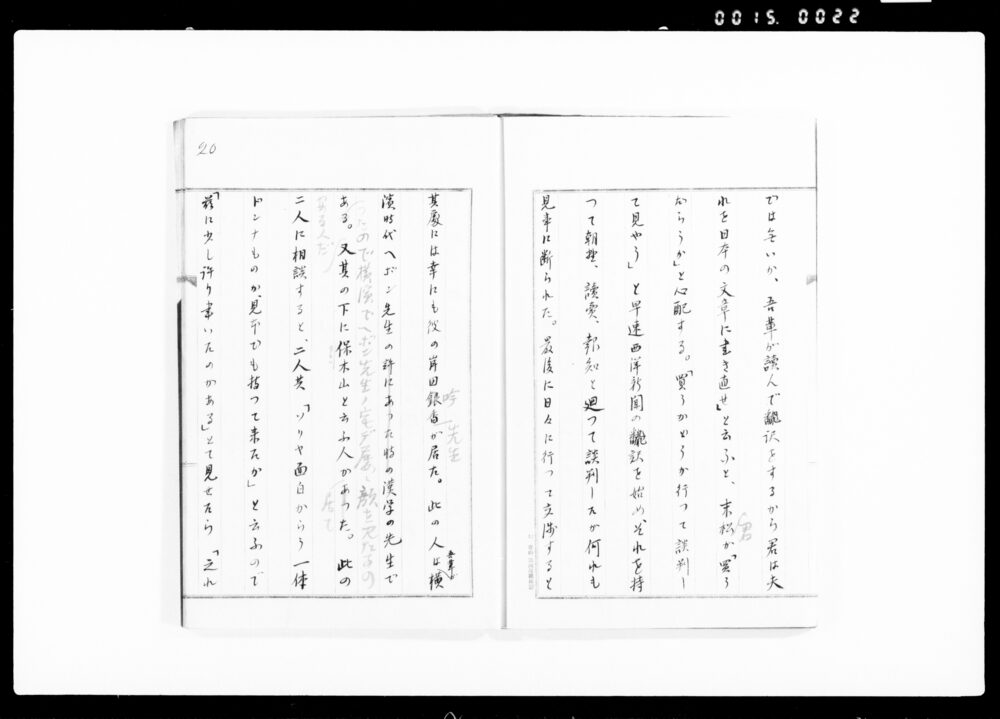 0015. 0022
では無いか、吾輩が読んで飜訳をするから君は夫
れを日本の文章に書き直せ」と云ふと、末松が「買う
だらうか」と心配する。「買うかどうか行つて談判し
て見やう」と早速西洋新聞の飜訳を始め其れを持
つて朝野、讀賣、報知と廻つて談判したが何れも
見事に断られた。最後に日々に行つて交渉すると
君
20
其處には幸にも彼の岸田銀香が居た。此の人は横
吾輩が
吟
先生
濱時代ヘボン先生の許にあつた時の漢学の先生で
つたので横濱でヘボン先生ノ宅デ屢々顔を見たるの
ある。又其の下に保木山と云ふ人があつた。此の
居て
ある人だ
二人に相談すると、二人共「ソリヤ面白からう一体
ドンナものか、見本でも持つて来たか」と云ふので
「茲に少し許り書いたのがある」とて見せたら「之れ